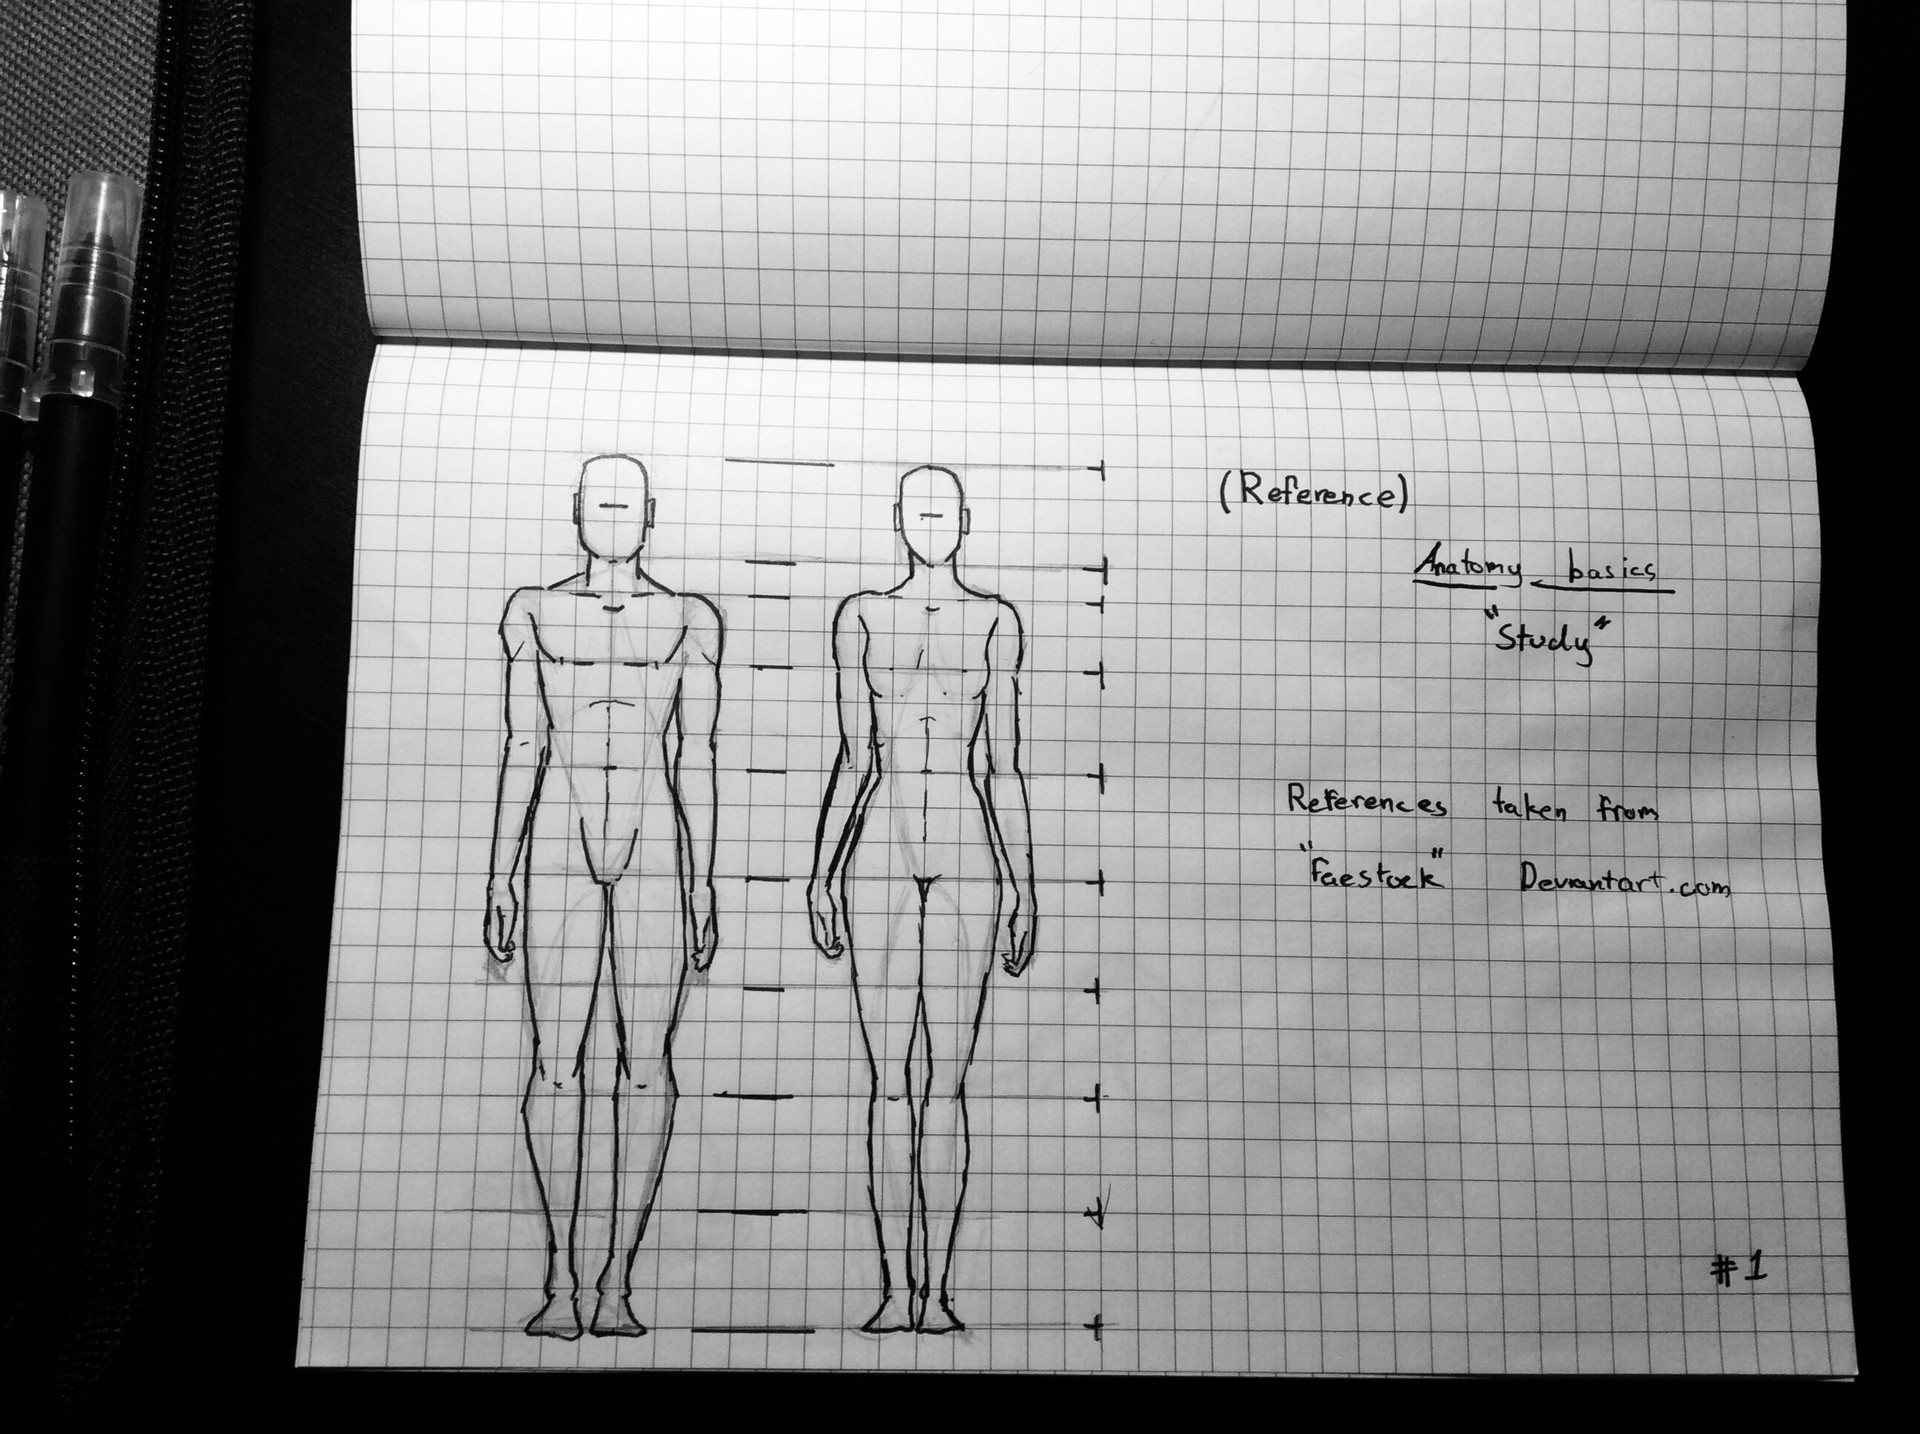 (Reference)
Anatomy basics
"Study"
References taken from
"faestock" Deviantart.com
#1